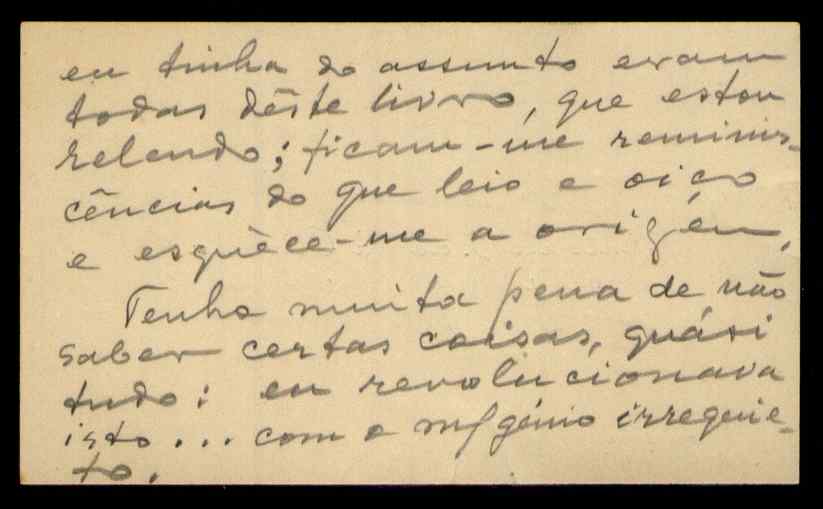 eu tinha do assunto eram
todas dêste livro, que estou
relendo; ficam-me reminis-
cências do que leio e oiço
e esquèce-me a origém.
Tenho muita pena de não
saber certas coisas, quási
tudo: eu revolucionava
isto... com o m/ génio irrequie-
to.